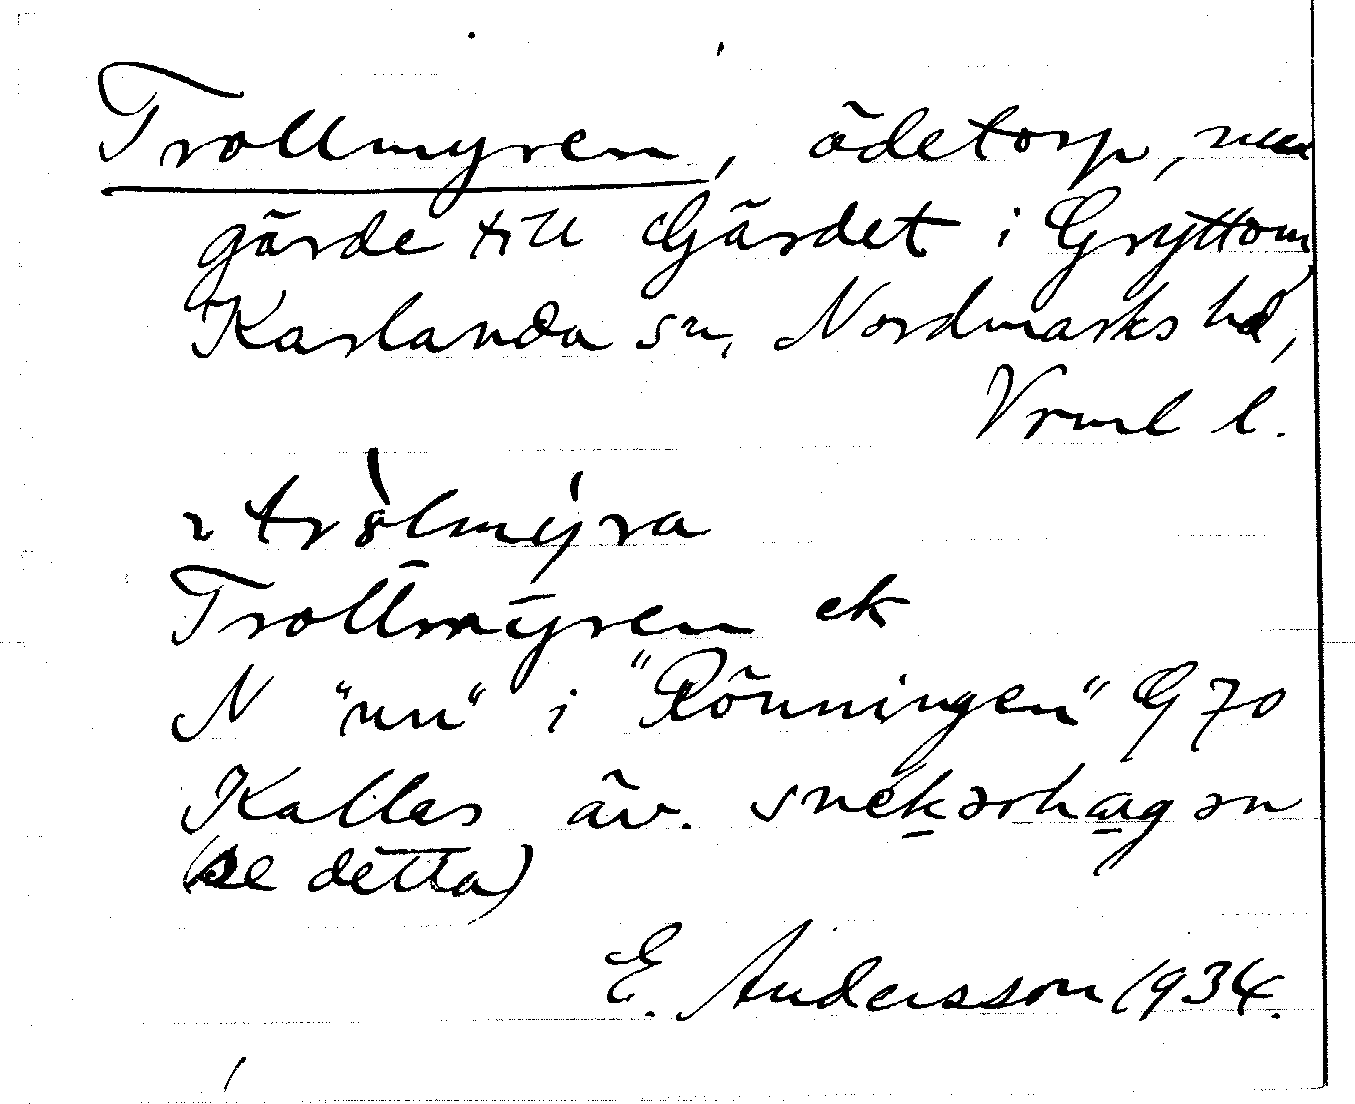 Trollmyren, ödetorp, nu
gärde till Gärdet i Gryttom,
Karlanda sn, Nordmarks hd,
Vrml l.
2 tròlmýra
Trollmyren ek
N "un" i "Rönningen" G 70
Kallas äv. snekərhagən
(se detta)
E. Andersson 1934.